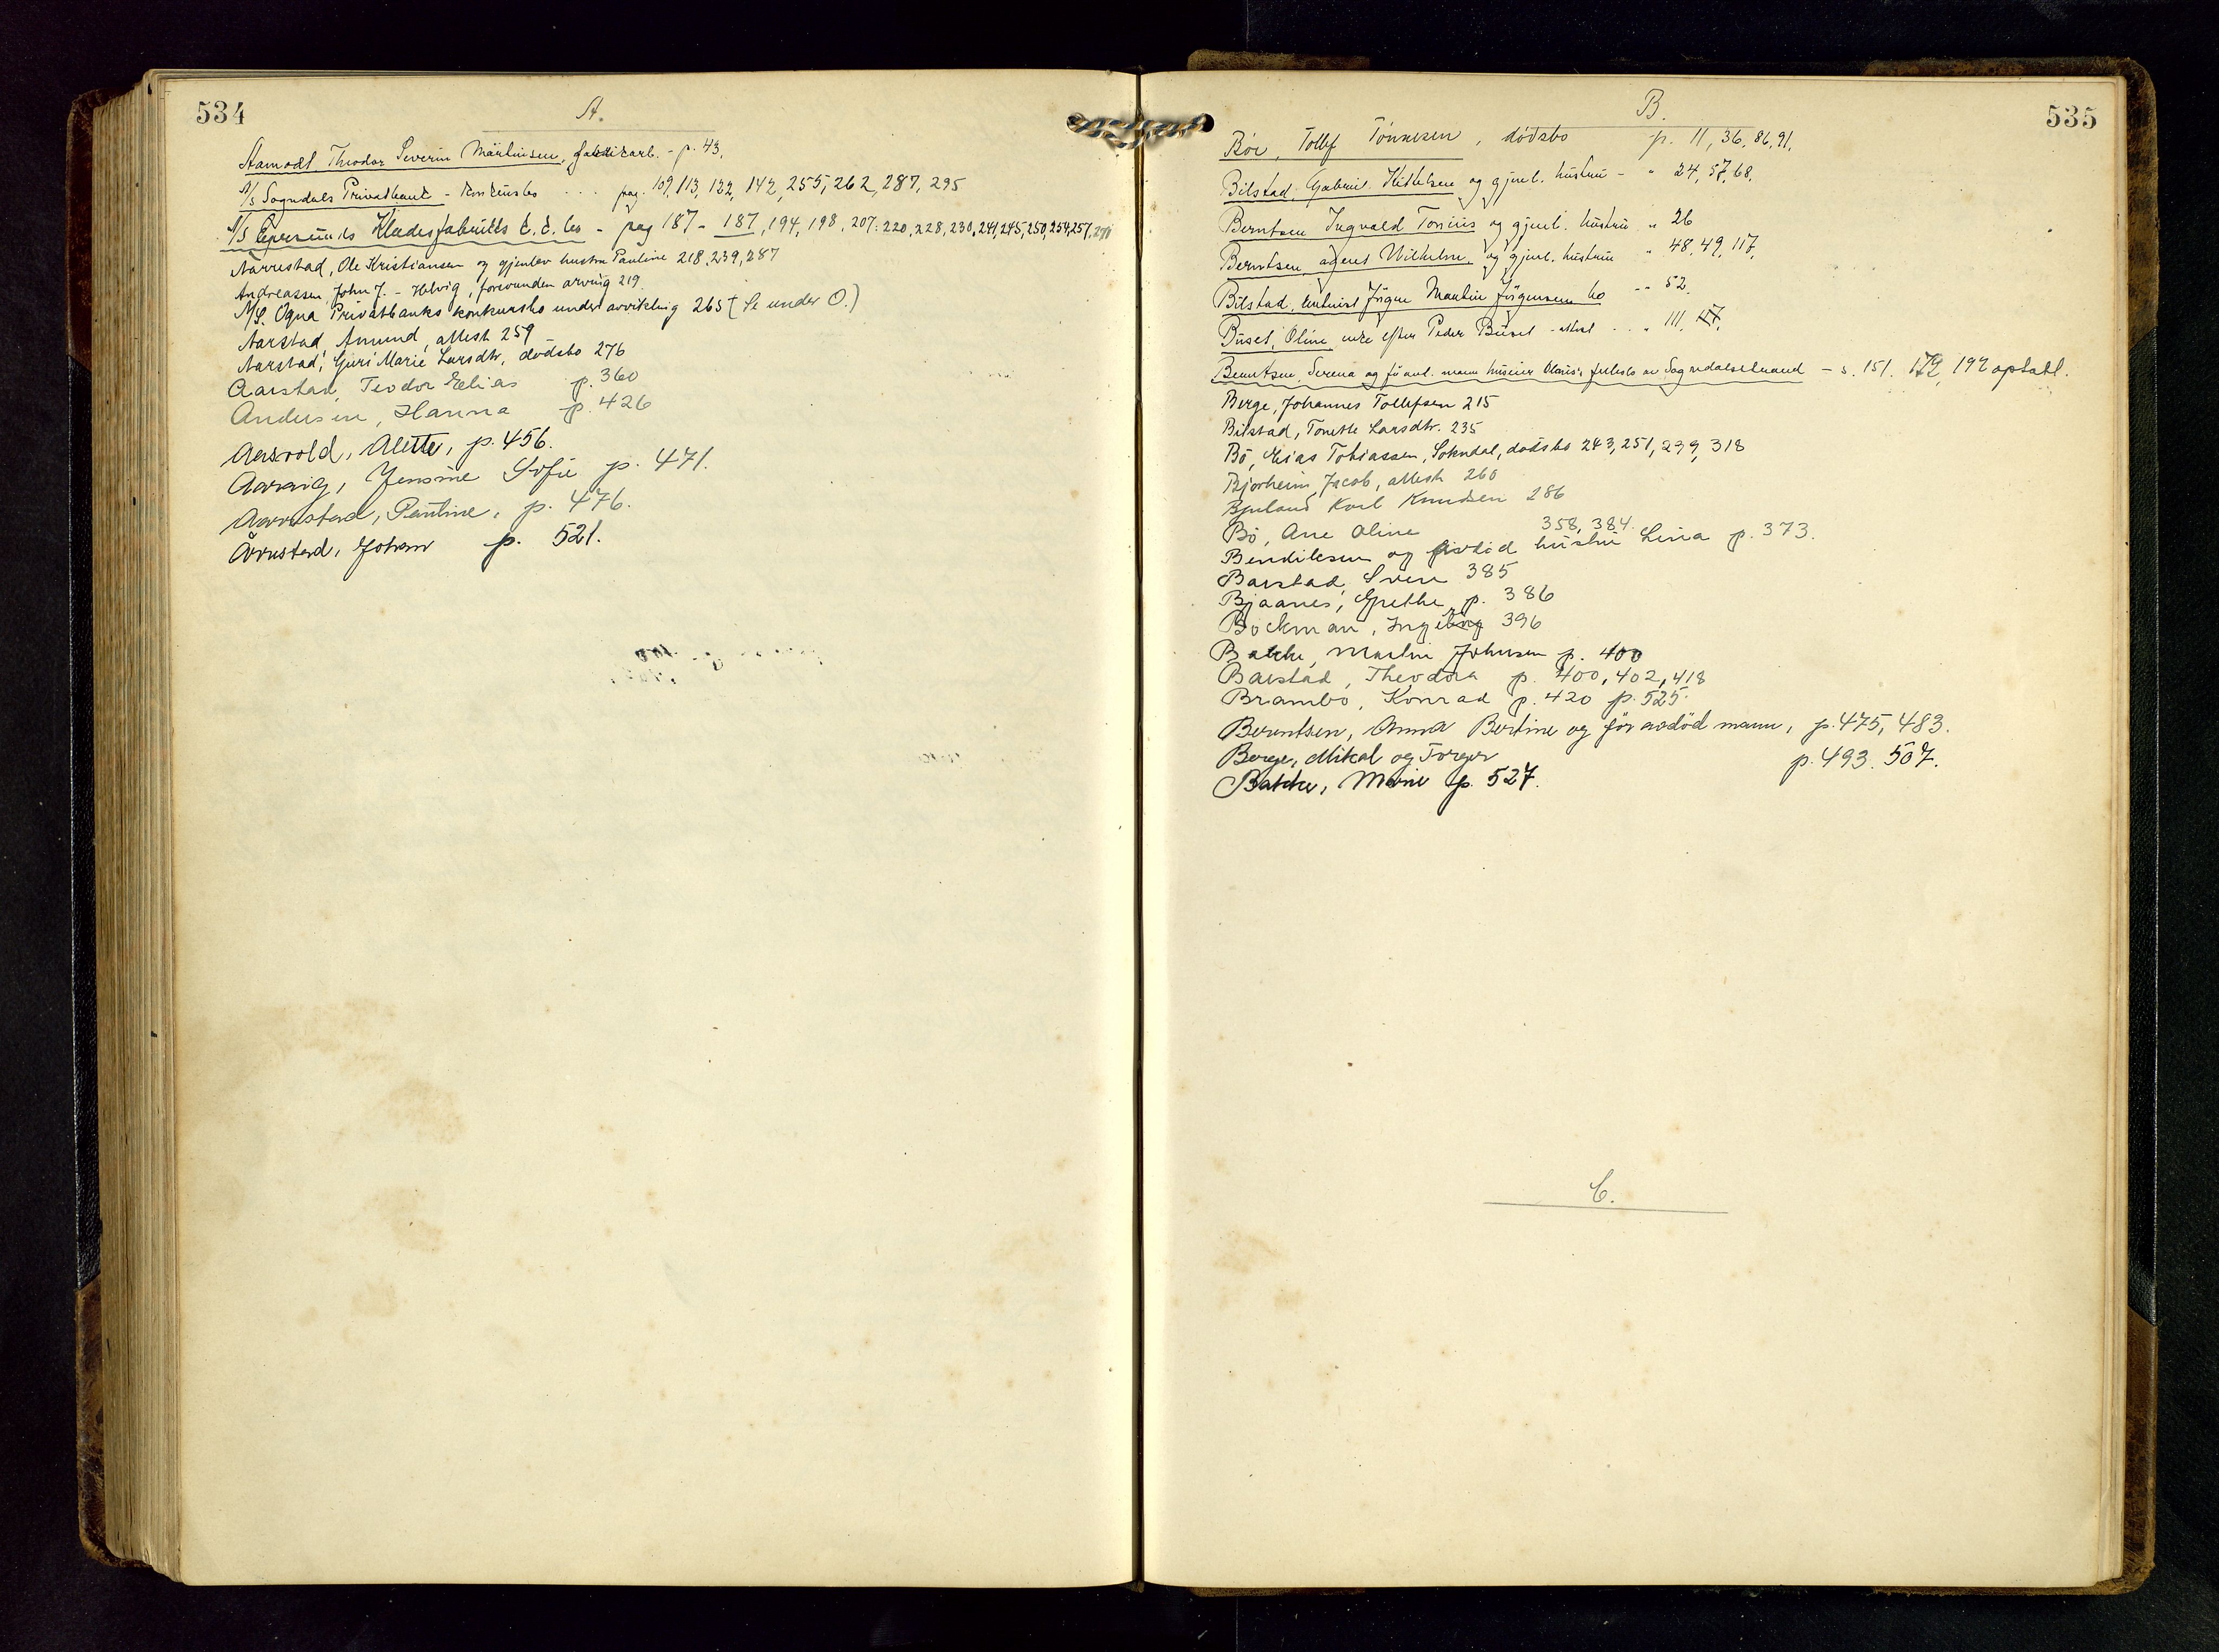 534
A.
Aamodt. Theodor Severin Martinsen, fabrikarb. - p. 43.
A/S Sogndals Privatbank - konkursbo ... pag. 109, 113, 122, 142, 255, 262, 287, 295
A/S Egersunds Klædesfabriks k.k. bo - pag 187 - 187, 194, 198, 207. 220, 228, 230, 241, 245, 250, 254, 257, 271
Aarrestad, Ole Kristiansen og gjenlev hustru Pauline 218, 239, 287
Andreassen, John J. - Helvig, forsvunden arving 219.
A/S. Ogna Privatbanks konkursbo under avvikling 265 (Se under O.)
Aarstad, Amund, attest 259
Aarstad, Guri Marie Larsdtr, dødsbo 276
Aarstad, Teodor Elias p. 360
Andersen, Hanna p. 426
Aasvold, Alette, p. 456.
Aarvig, Jensine Sofie p. 471.
Aarrestad, Pauline, p. 476.
Årrestad, Johan p. 521.
535
B.
Bøe, Tollef Tønnesen, dødsbo p. 11, 36, 86, 91.
Bilstad, Gabriel Kittelsen og gjenl. hustru - " 24, 57, 68.
Berntsen Ingvald Tonius og gjenl. hustru " 26
Berntsen, Agent Wilhelm, og gjenl. hustru " 48, 49, 117,
Bilstad, Jørgen Martin Jørgensen bo " 52.
Buset, Oline enke efter Peder Buset - attest ... " 111,
Berntsen, Serena og før avl. mann huseier Olaus's fellesbo av Sogndalsstrand - s. 151. 179, 192 optatt.
Berge, Johannes Tollefsen 215
Bilstad, Tonette Larsdtr. 235
Bö, Elias Tobiassen, Sokndal, dødsbo 243, 251, 299, 318
Bjorheim, Jacob, attest 260
Bjuland Karl Knudsen 286
Bö, Ane Oline 358, 384.
Bendiksen og hustru Lina p. 373.
Barstad, Sven 385
Bjaanes, Grethe p. 386
Böckman, Ingeborg 396
Bakke, Martin Johnsen p. 400
Barstad, Theodora p. 400, 402, 418
Brambo, Konrad p. 420 p. 525.
Berntsen, Anna Bertine og før avdød mann, p. 475, 483.
Berge, Mikal og Torger p. 493. 507.
Bakke, Marie p. 527.
C.